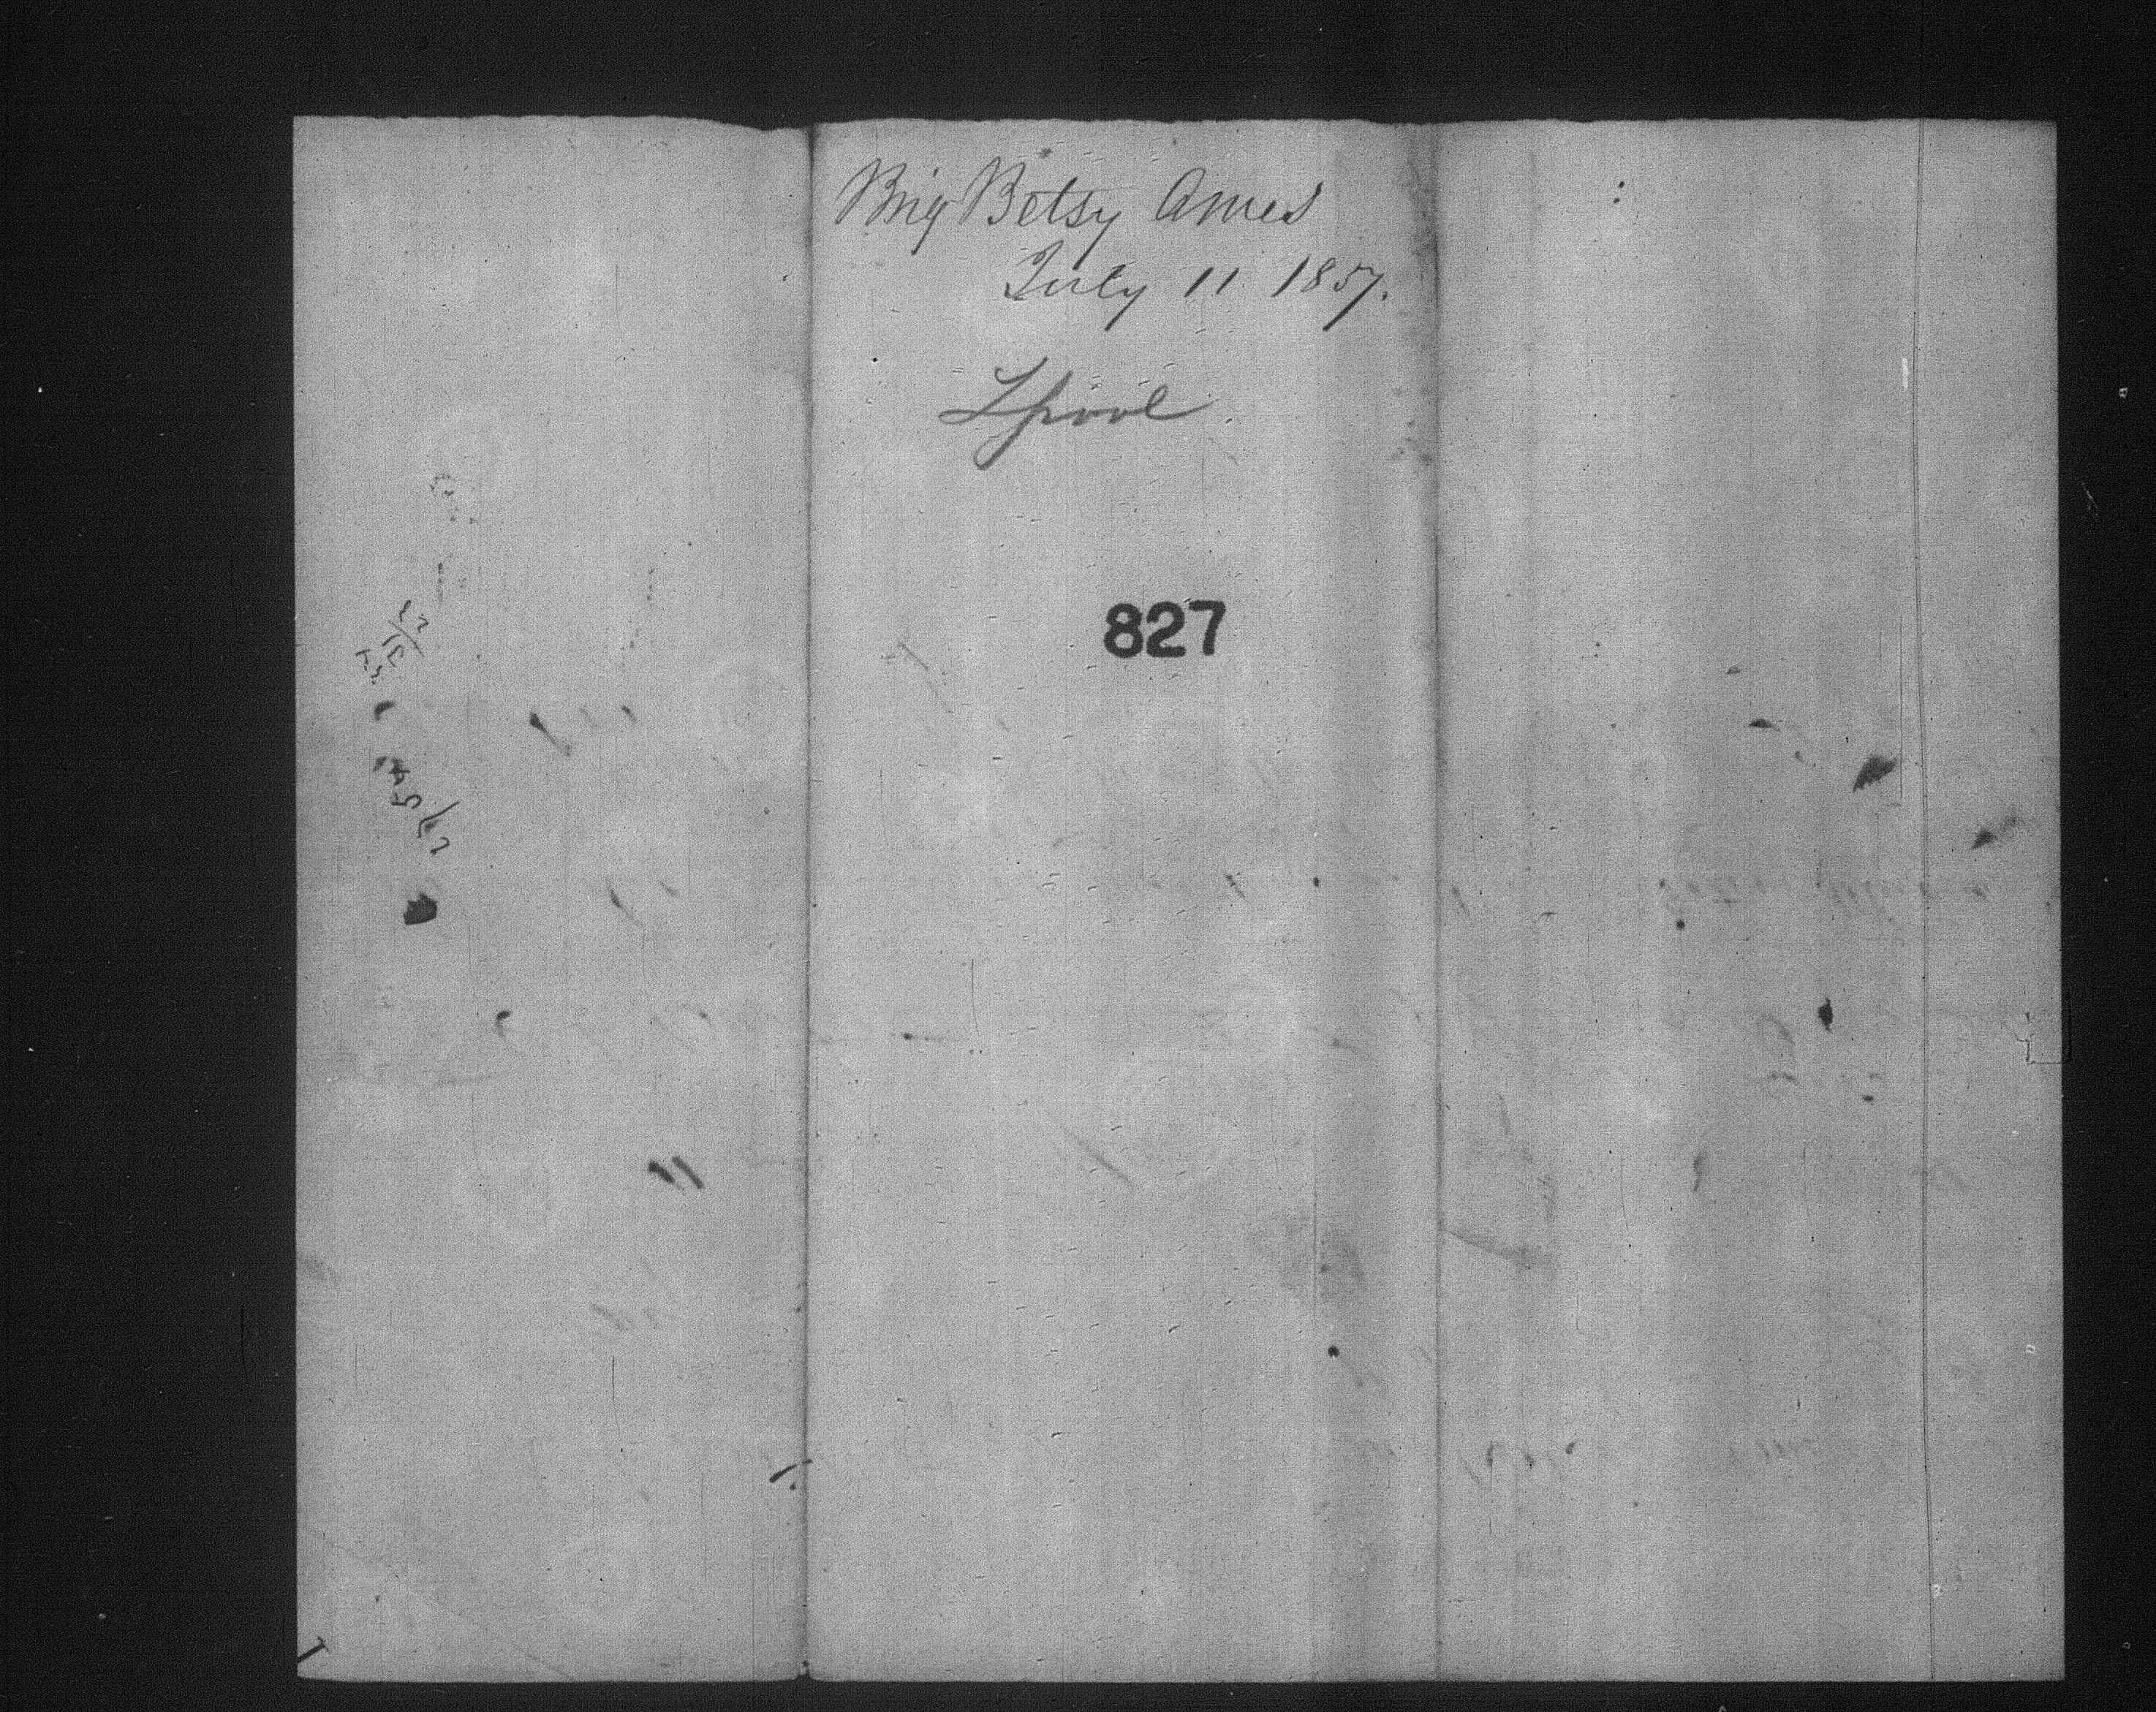 Brig Betsy Ames
July 11 1857.
Lpool
827